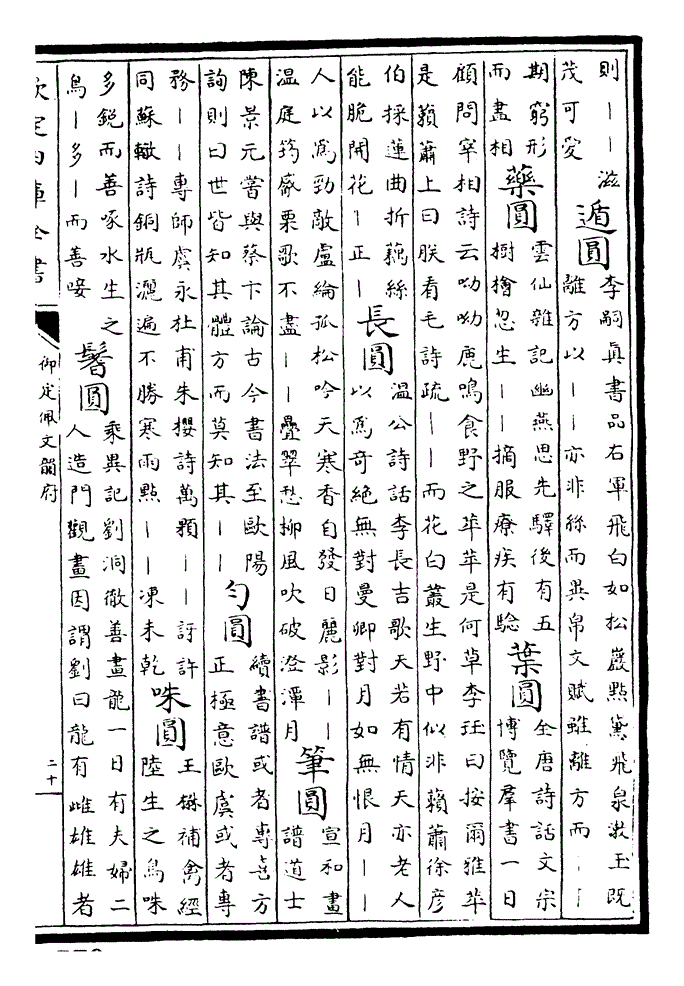 則｜｜滋
茂可愛
遁圓
李嗣真書品右軍飛白如松巖點黛飛泉漱玉既
離方以｜｜亦非絲而異帛文賦雖離方而｜｜
期窮形
而盡相
藥圓
雲仙雜記幽燕思先驛後有五
樹檜忽生｜｜摘服療疾有驗
葉圓
全唐詩話文宗
博覽羣書一日
顧問宰相詩云呦呦鹿鳴食野之苹苹是何草李珏曰按爾雅苹
是藾蕭上曰朕看毛詩疏｜｜而花白叢生野中似非藾蕭徐彦
伯採蓮曲折藕絲
能脆開花｜正｜
長圓
温公詩話李長吉歌天若有情天亦老人
以爲奇絶無對曼卿對月如無恨月｜｜
人以爲勁敵盧綸孤松吟天寒香自發日麗影｜｜
温庭筠觱栗歌不盡｜｜疊翠愁柳風吹破澄潭月
筆圓
宣和畫
譜道士
陳景元嘗與蔡卞論古今書法至歐陽
詢則曰世皆知其體方而莫知其｜｜
勻圓
續書譜或者專喜方
正極意歐虞或者專
務｜｜專師虞永杜甫朱櫻詩萬顆｜｜訝許
同蘇轍詩銅瓶灑遍不勝寒雨點｜｜凍未乾
咮圓
王楙補禽經
陸生之鳥咮
多銳而善啄水生之
鳥｜多｜而善唼
鬐圓
乘異記劉洞微善畫龍一日有夫婦二
人造門觀畫因謂劉曰龍有雌雄雄者
欽定四庫全書
御定佩文韻府
二十